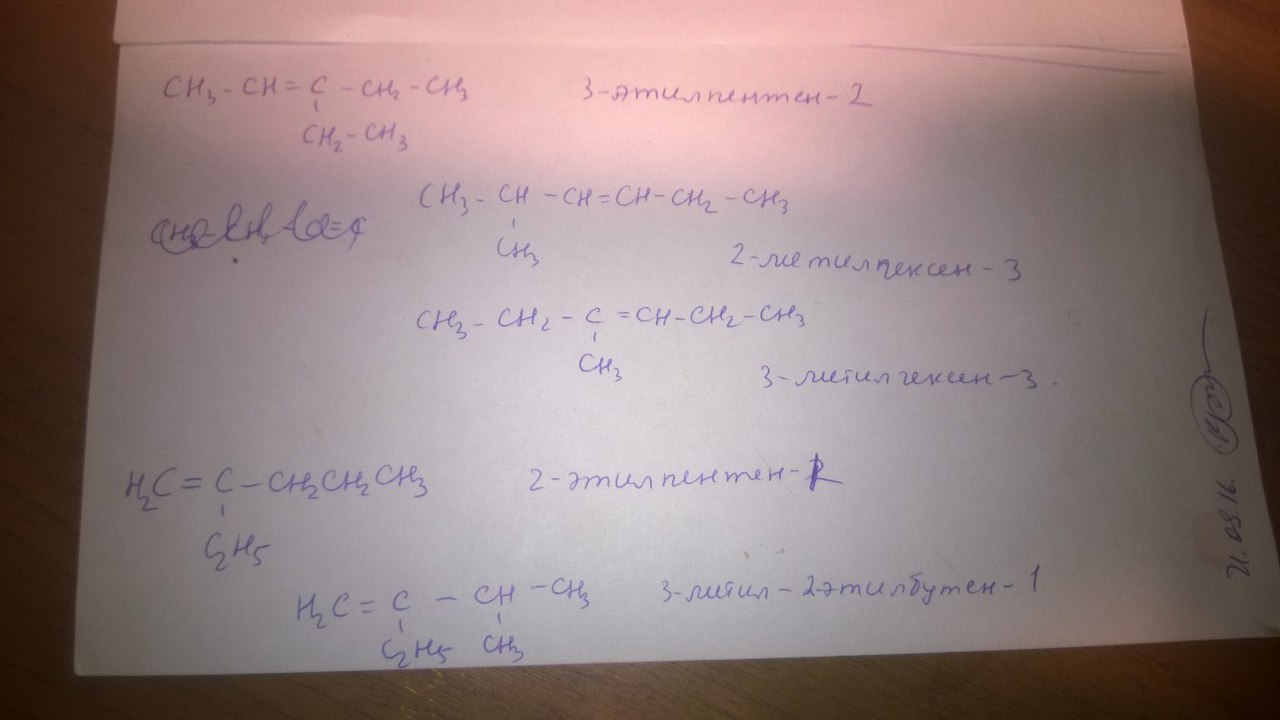 CH₃ - CH = C - CH₂ - CH₃ 3-этилпентен-2
CH₂ - CH₃
CH₃ - CH - CH = CH - CH₂ - CH₃
CH₃
2-метилгексен-3
CH₃ - CH₂ - C = CH - CH₂ - CH₃
CH₃
3-метилгексен-3.
H₂C = C - CH₂CH₂CH₃ 2-этилпентен-1
C₂H₅
H₂C = C - CH - CH₃ 3-метил-2-этилбутен-1
C₂H₅ CH₃